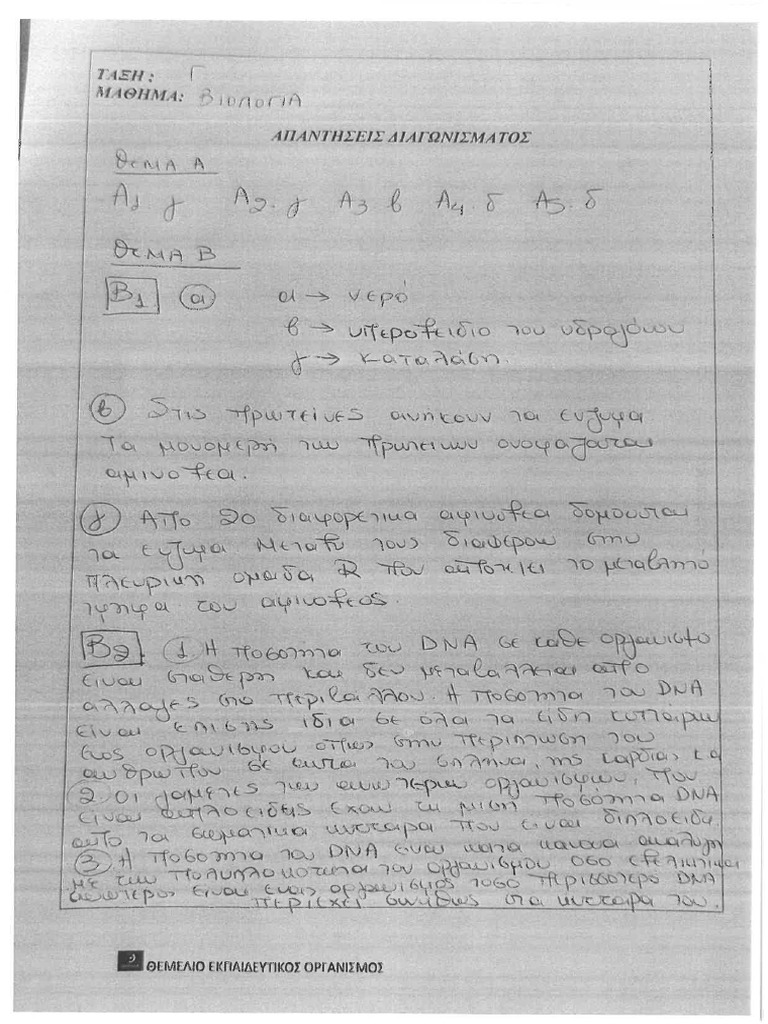 ΤΑΞΗ : Γ
ΜΑΘΗΜΑ: ΒΙΟΛΟΓΙΑ
ΑΠΑΝΤΗΣΕΙΣ ΔΙΑΓΩΝΙΣΜΑΤΟΣ
ΘΕΜΑ Α
Α1 γ Α2. γ Α3 β Α4. δ Α5. δ
ΘΕΜΑ Β
Β1 α α → νερό
β → υπεροξειδιο του υδρογόνου
γ → καταλάση.
β Στις πρωτεΐνες ανήκουν τα ενζυμα
Τα μονομερή των πρωτεινων ονομάζονται
αμινοξεα.
γ Απο 20 διαφορετικα αμινοξεα δομουνται
τα ενζυμα. Μεταξυ τους διαφερουν στην
πλευρικη ομαδα R που αποτελει το μεταβλητό
τμημα του αμινοξεος.
Β2 1 Η ποσοτητα του DNA σε καθε οργανισμο
ειναι σταθερη και δεν μεταβαλλεται απο
αλλαγες στο περιβαλλον. Η ποσοτητα του DNA
είναι επισης ιδια σε όλα τα είδη κυτταρων
ενος οργανισμου οπως στην περιπτωση του
ανθρωπου σε αυτα του σπληνα, της καρδιας κα
2. Οι γαμετες των ανωτερων οργανισμων, που
ειναι απλοειδεις εχουν τη μιση ποσότητα DNA
απο τα σωματικα κυτταρα που ειναι διπλοειδη
3 Η ποσοτητα του DNA ειναι κατα κανονα αναλογη
με την πολυπλοκοτητα του οργανισμου οσο εξελικτικα
ανωτερος ειναι ενας οργανισμος τοσο περισσοτερο DNA
περιεχει συνηθως στα κυτταρα του.
ΘΕΜΕΛΙΟ ΕΚΠΑΙΔΕΥΤΙΚΟΣ ΟΡΓΑΝΙΣΜΟΣ